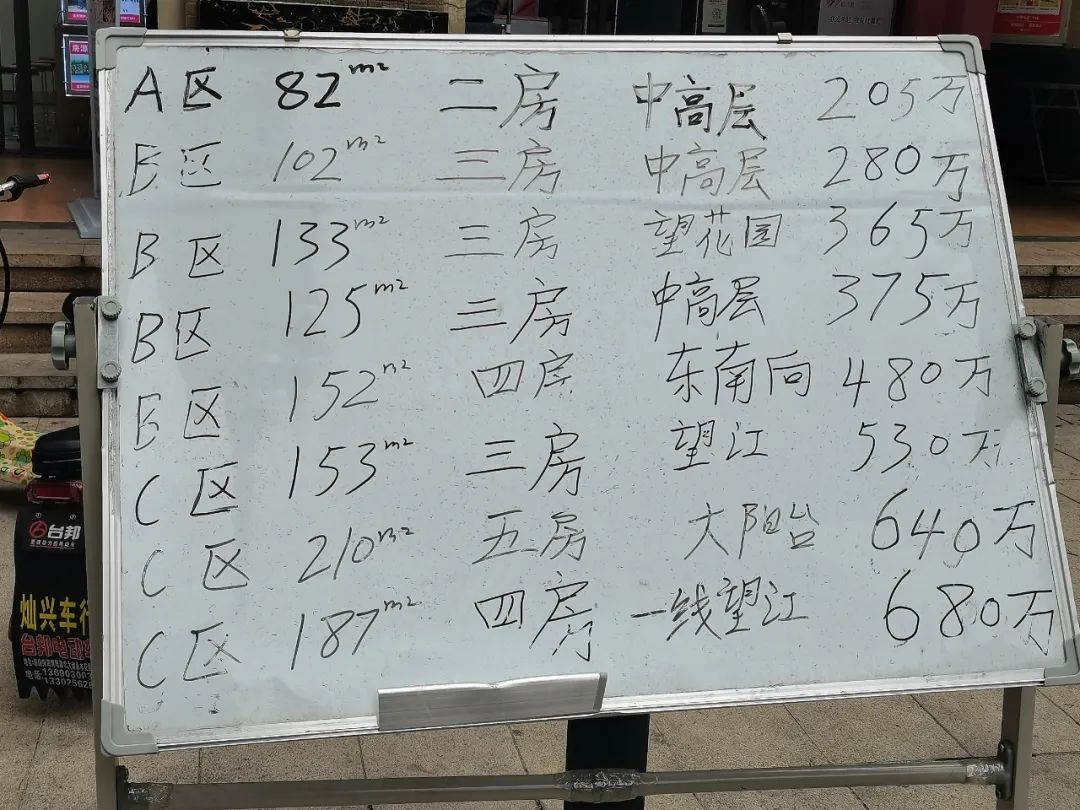 A区 82m² 二房 中高层 205万
E区 102m² 三房 中高层 280万
B区 133m² 三房 望花园 365万
B区 125m² 三房 中高层 375万
E区 152m² 四房 东南向 480万
C区 153m² 三房 望江 530万
C区 210m² 五房 大阳台 640万
C区 187m² 四房 一线望江 680万
台邦
灿兴车行
台邦电动